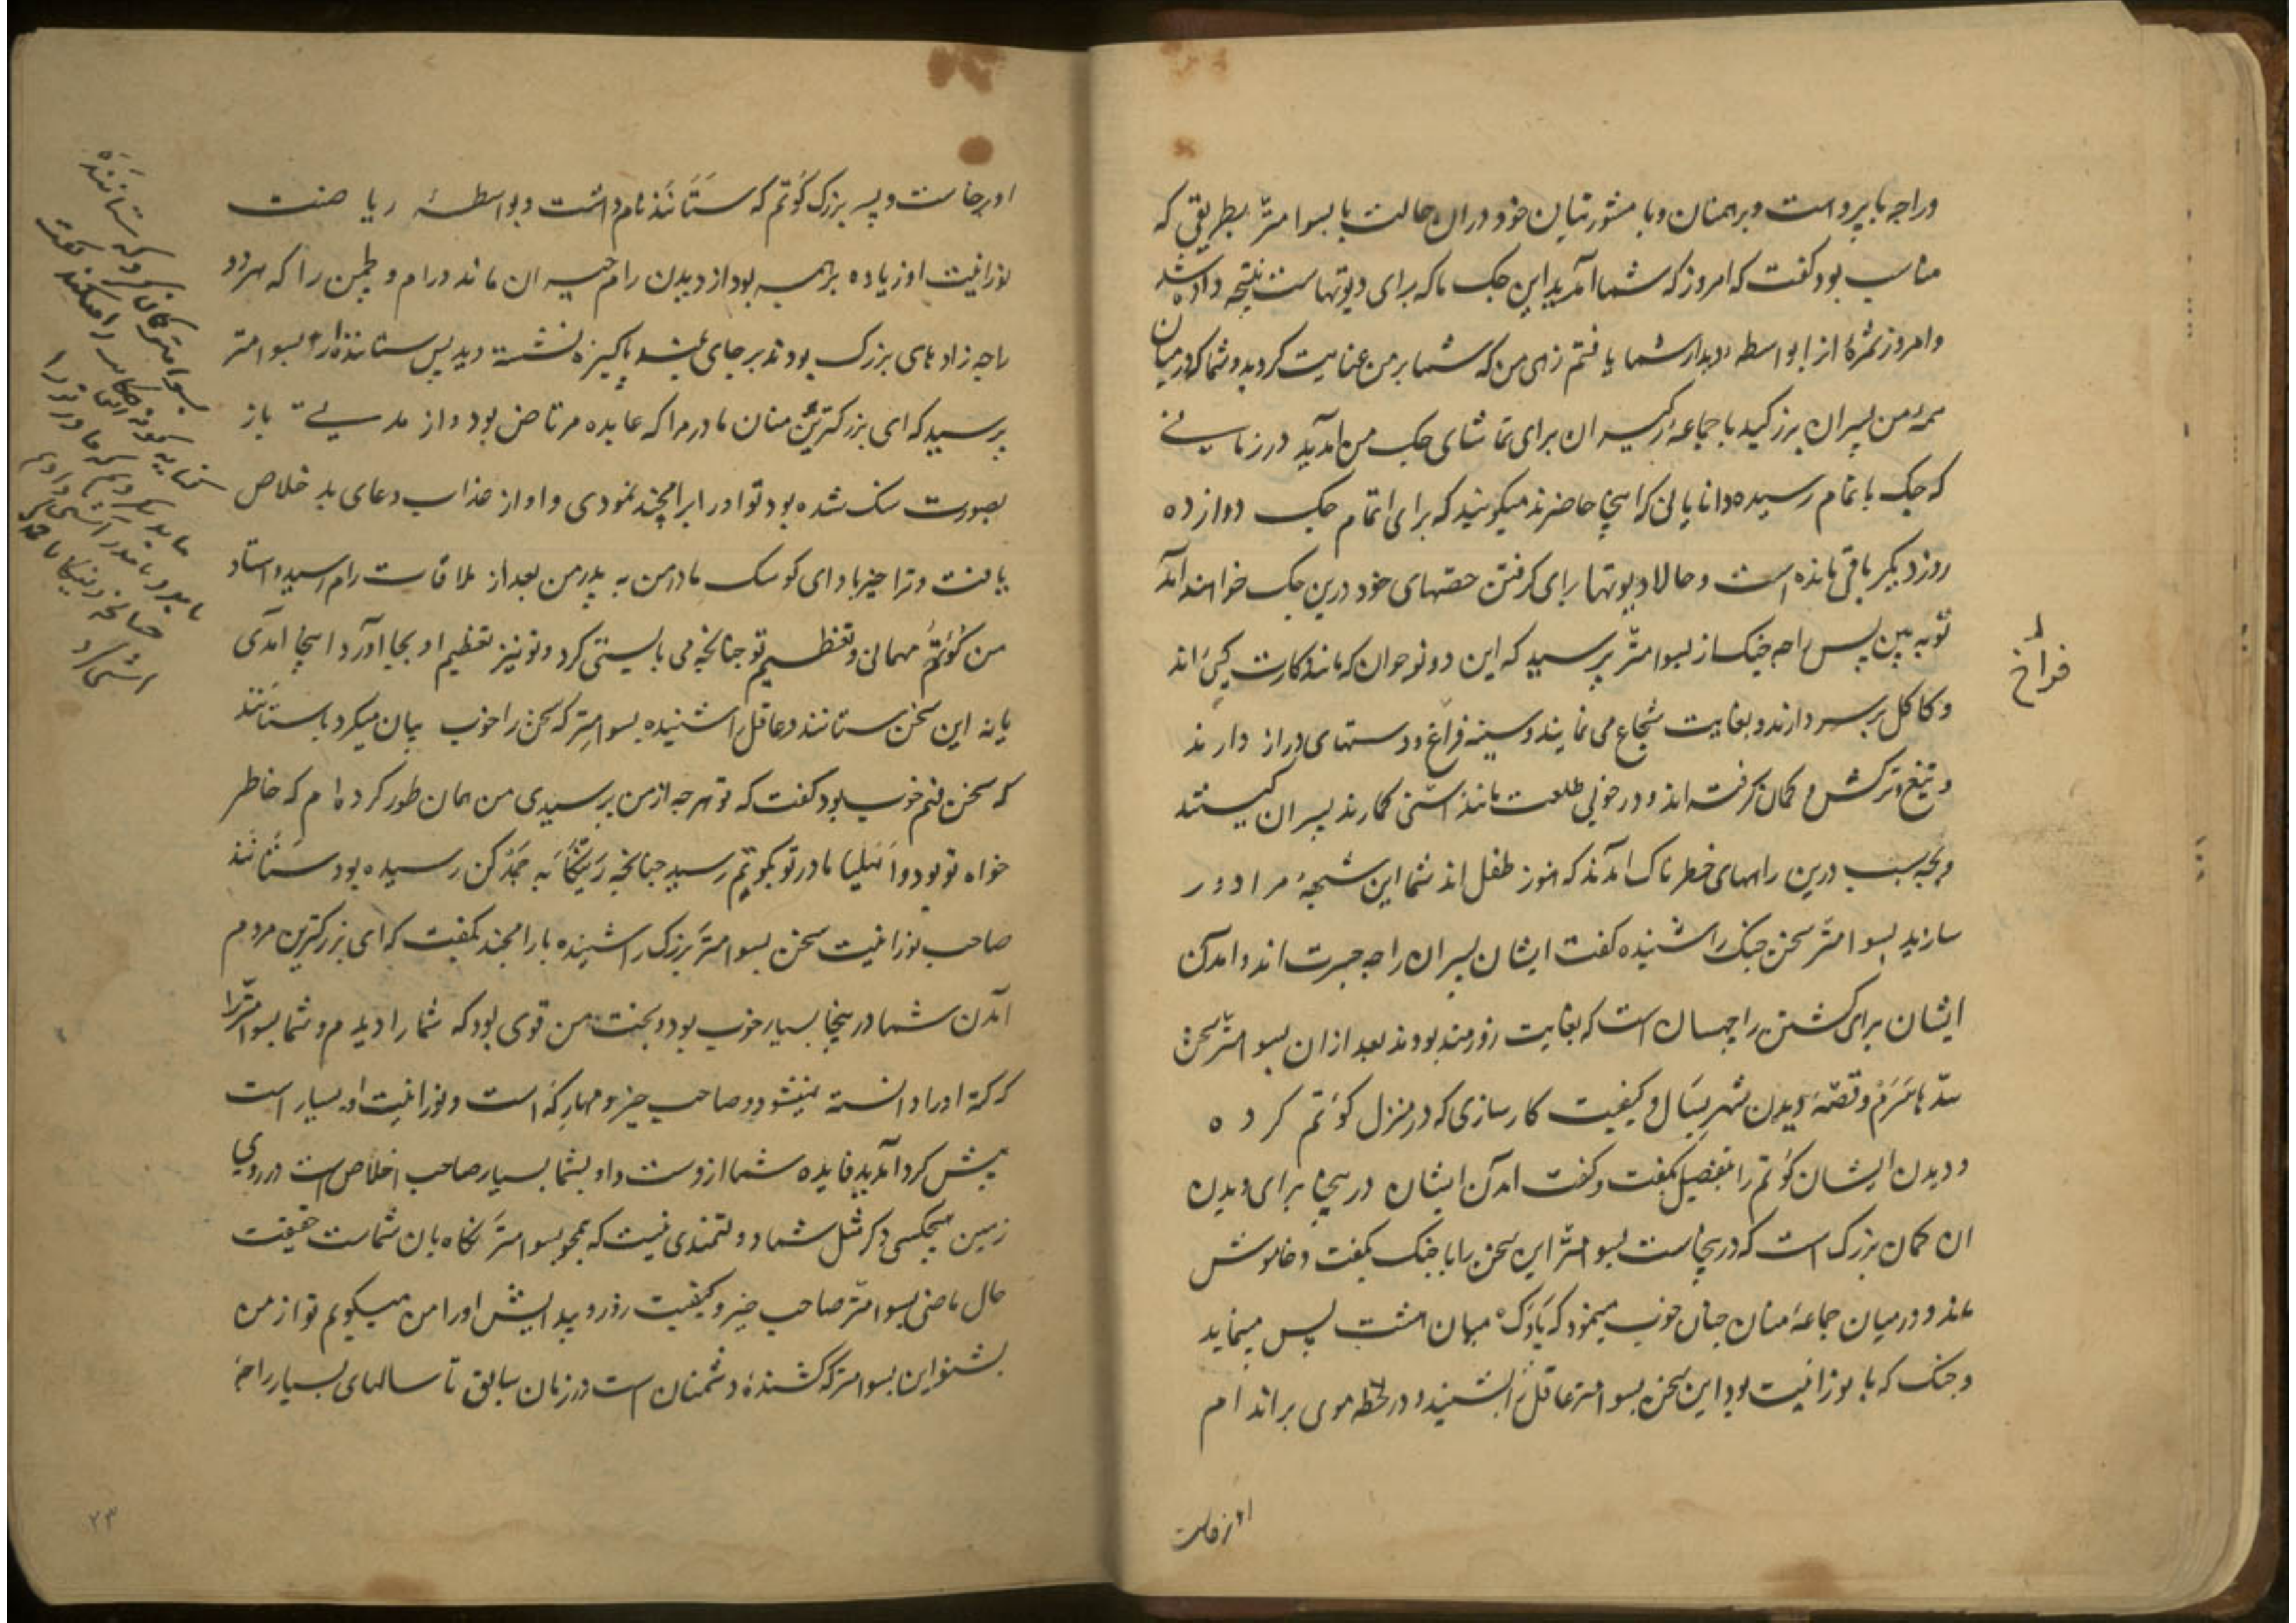 وراجه با پروهت و برهمنان و با مشورتیان خود دران حالت با بسوامتر بطریقی که
مناسب بود کفت که امروز که شما آمدید این جک ما که برای دیوتهاست نتیجه داده شد
وامروز ثمرهٔ از بواسطه دیدار شما یافتم زهی من که شما بر من عنایت کردید و شما که درمیان
همهٔ من پسران بزرکید با جماعهٔ رکیسران برای تماشای جک من آمدید در زمانی
که جک باتمام رسیده دانایانی که اینجا حاضرند میکویند که برای اتمام جک دوازده
روز دیکر باقی مانده است و حالا دیوتها برای کرفتن حصّهای خود درین جک خواهند آمد
تو به بین پس راجه جنک از بسوامتر پرسید که این دو نوجوان که مانند کارت اند
و کاکل بر سر دارند و بغایت شجاع می نمایند و سینه فراغ و دستهای دراز دارند
فراخ
و تیغ و ترکش و کمان کرفته اند و در خوبی طلعت مانند اشنی کمارند پسران کیستند
و بچه سبب درین راههای خطرناک آمدند که هنوز طفل اند شما این شبههٔ مرا دور
سازید بسوامتر سخن جنک را شنیده کفت ایشان پسران راجه جسرت اند و آمدن
ایشان برای کشتن راچهسان است که بغایت زورمند بودند بعد ازان بسوامتر سخن
سدّهاشرم و قصّهٔ دیدن شهر بسال و کیفیت کارسازی که در منزل کوتم کرده
و دیدن ایشان کوتم را بتفصیل بکفت و کفت آمدن ایشان درینجا برای دیدن
ان کمان بزرک است که درینجاست بسوامتر این سخن را با جنک بکفت و خاموش
ماند و درمیان جماعهٔ منان چنان خوب مینمود که میان پس مینماید
و جنک که با نورانیت بود این سخن بسوامتر عاقل را بشنید و در لحظه موی بر اندام
او برخاست
او برخاست و پسر بزرک کوتم که ستانند نام داشت و بواسطهٔ ریاضت
نورانیت او زیاده بر همه بود از دیدن رام حیران ماند و رام و لچمن را که هر دو
راجه زادهای بزرک بودند بر جای بلند پاکیزه نشسته دید پس ستانند از بسوامتر
پرسید که ای بزرکترین منان مادر مرا که عابده مرتاض بود و از مدتی باز
بصورت سنک شده بود تو او را برامچند نمودی و او از عذاب دعای بد خلاص
یافت و ترا خیر باد ای کوسک مادر من به پدر من بعد از ملاقات رام رسید و استاد
من کوتم مهمانی و تعظیم تو چنانچه می بایستی کرد و تو نیز تعظیم او بجا آورد اینجا آمدی
یا نه این سخن ستانند عاقل را شنیده بسوامتر که سخن را خوب بیان میکرد با ستانند
که سخن فهم خوب بود کفت که تو هرچه از من پرسیدی من همان طور کرده ام که خاطر
خواه تو بود و اهلیا مادر تو بکوتم رسید چنانچه رینکا به جمدکن رسیده بود ستانند
صاحب نورانیت سخن بسوامتر بزرک را شنیده با رامچند بکفت که ای بزرکترین مردم
آمدن شما درینجا بسیار خوب بود و بخت من قوی بود که شما را دیدم و شما بسوامتر را
که کنه او را دانسته نمیشود و صاحب خیر و مهارکه است و نورانیت او بسیار است
پیش کرد آمدید فایده شما ازوست و او بشما بسیار صاحب اخلاص است در روی
زمین هیچکس دکر مثل شما دولتمندی نیست که همچو بسوامتر نکاهبان شماست حقیقت
حال ماضی بسوامتر صاحب خیر و کیفیت زور و پیدایش او را من میکویم تو از من
بشنو این بسوامتر که کشندهٔ دشمنان است در زمان سابق تا سالهای بسیار راجهٔ
۲۳